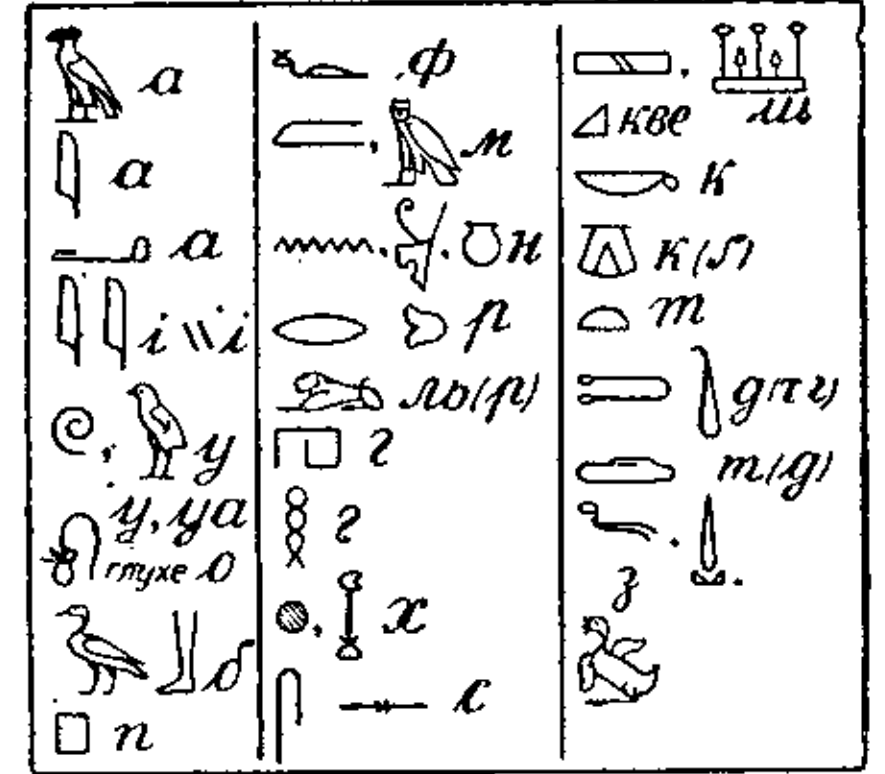 а
а
а
і \\ і
, у
у, уа
глухе о
б
п
. ф
, м
, . н
р
ль(р)
г
г
, х
с
, ш
кве
к
к(г)
т
д(т г)
т(д)
, .
з